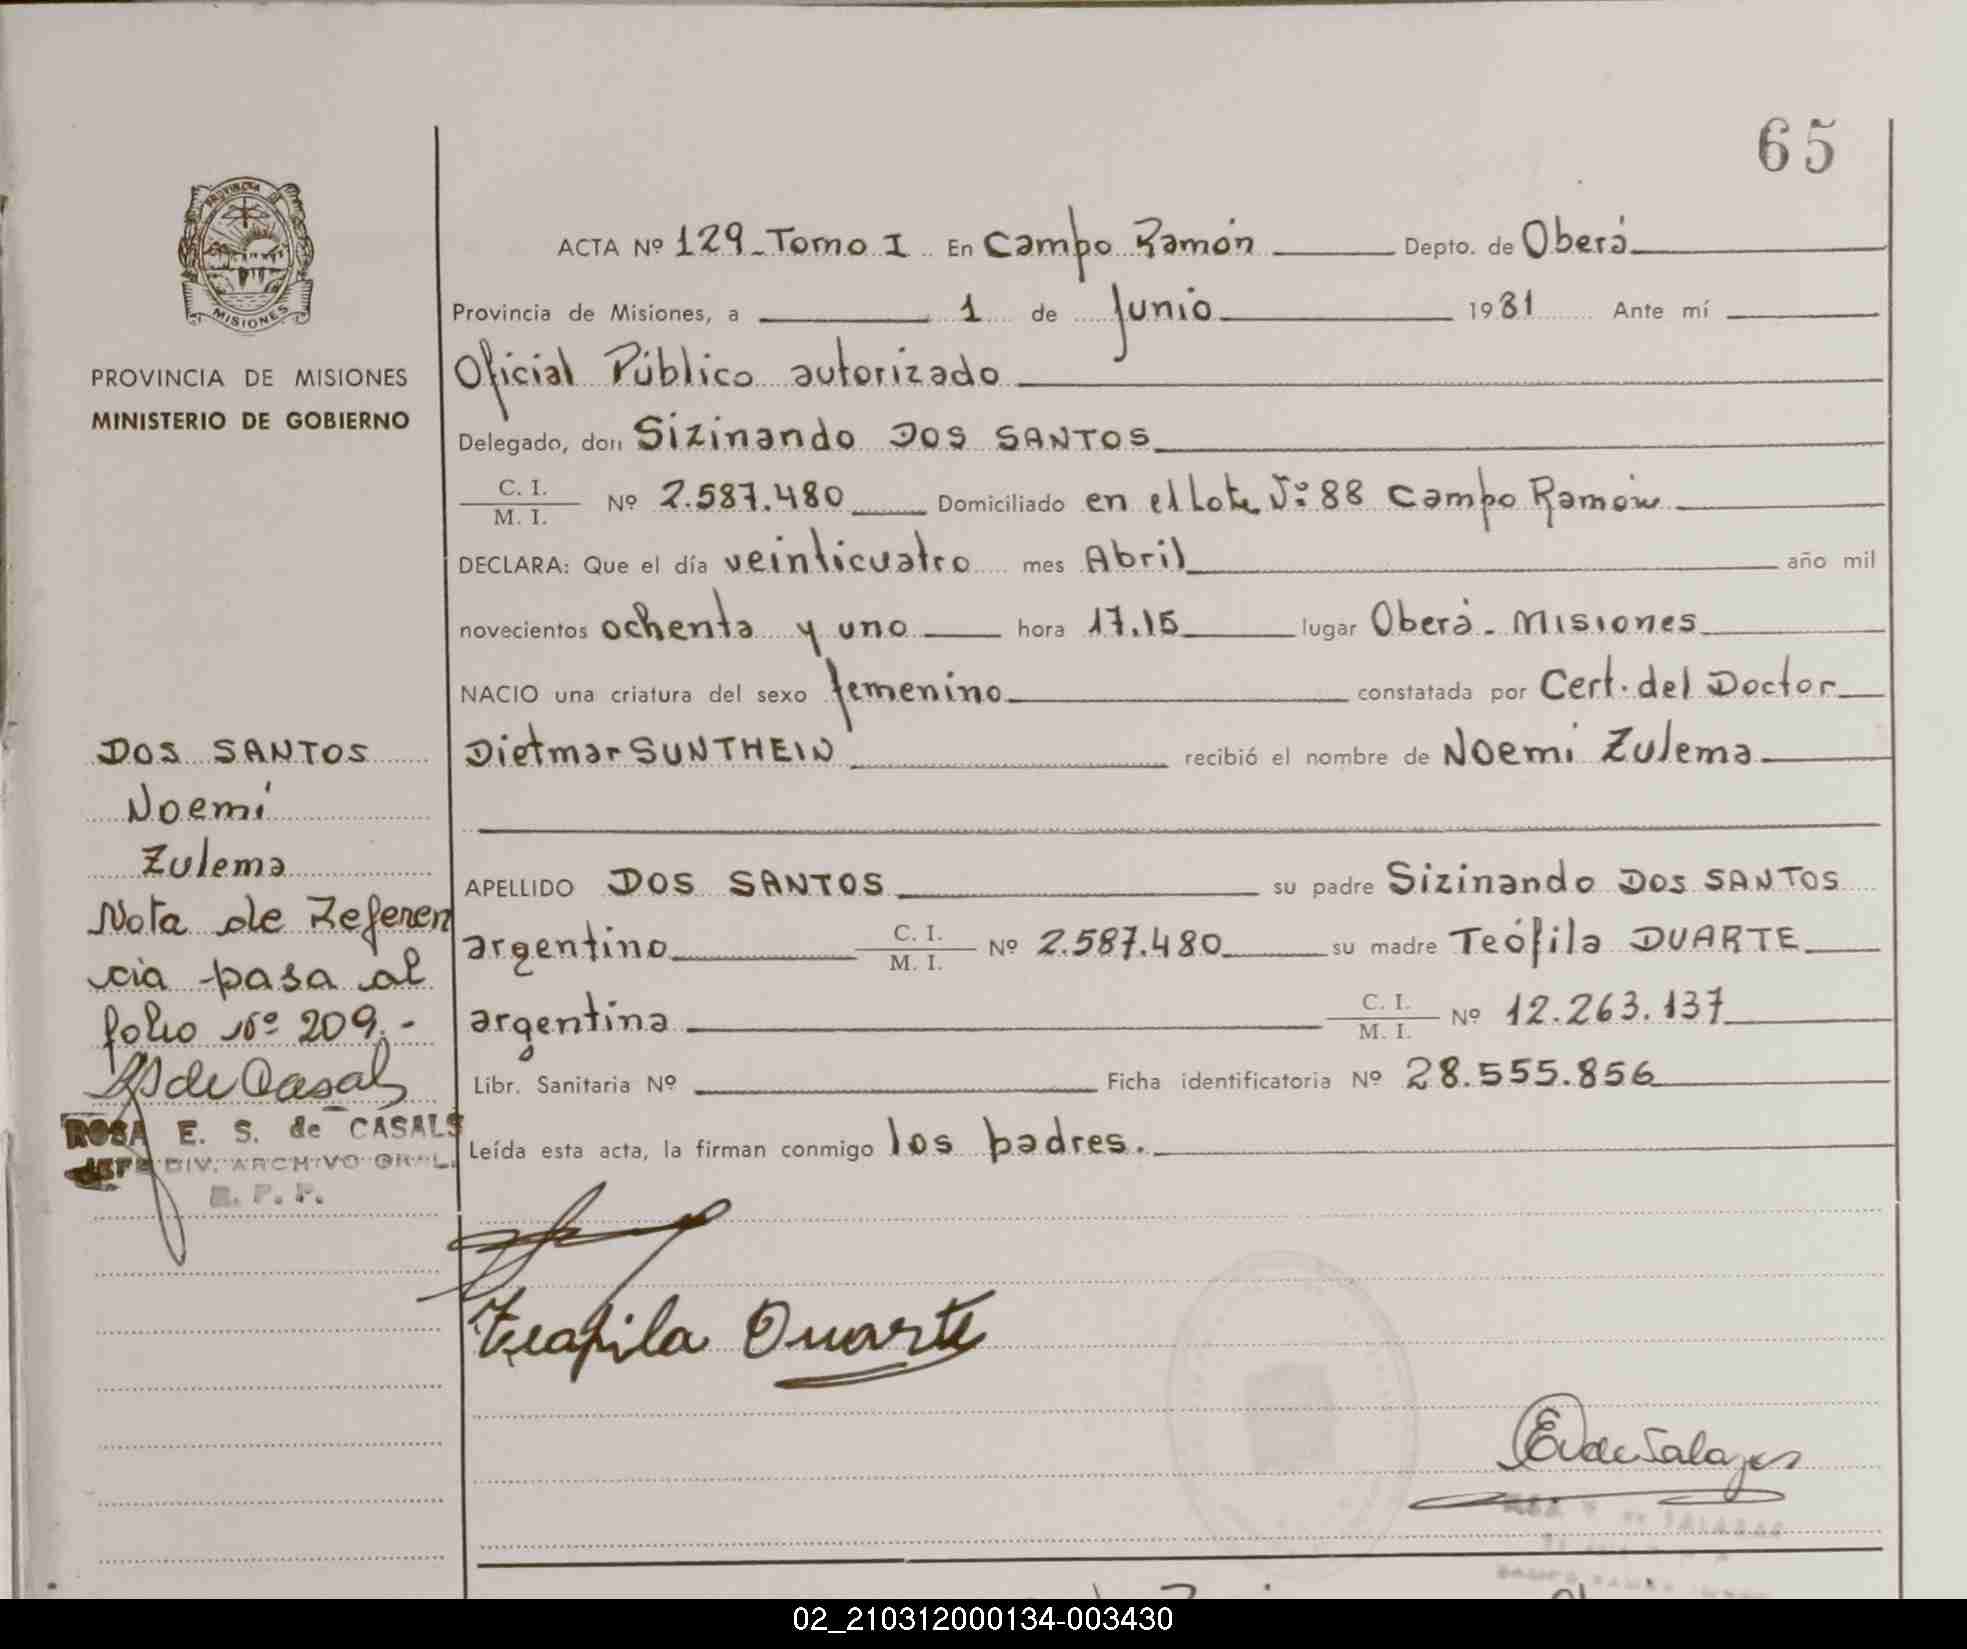 65
PROVINCIA
MISIONES
PROVINCIA DE MISIONES
MINISTERIO DE GOBIERNO
ACTA Nº 129 - Tomo I En Campo Ramón Depto. de Oberá
Provincia de Misiones, a 1 de Junio 1981 Ante mí
Oficial Público autorizado
Delegado, don Sizinando DOS SANTOS
C. I. / M. I. Nº 2.587.480 Domiciliado en el Lote Nº 88 Campo Ramón
DECLARA: Que el día veinticuatro mes Abril año mil
novecientos ochenta y uno hora 17.15 lugar Oberá - Misiones
NACIO una criatura del sexo femenino constatada por Cert. del Doctor
Dietmar SUNTHEIN recibió el nombre de Noemí Zulema
APELLIDO DOS SANTOS su padre Sizinando DOS SANTOS
argentino C. I. / M. I. Nº 2.587.480 su madre Teófila DUARTE
argentina C. I. / M. I. Nº 12.263.137
Libr. Sanitaria Nº Ficha identificatoria Nº 28.555.856
Leída esta acta, la firman conmigo los padres.
DOS SANTOS
Noemí
Zulema
Nota de Referen
cia pasa al
folio Nº 209.-
de Casals
ROSA E. S. de CASALS
JEFE DIV. ARCHIVO GRAL.
R. P. P.
Teofila Duarte
de Salazar
02_210312000134-003430